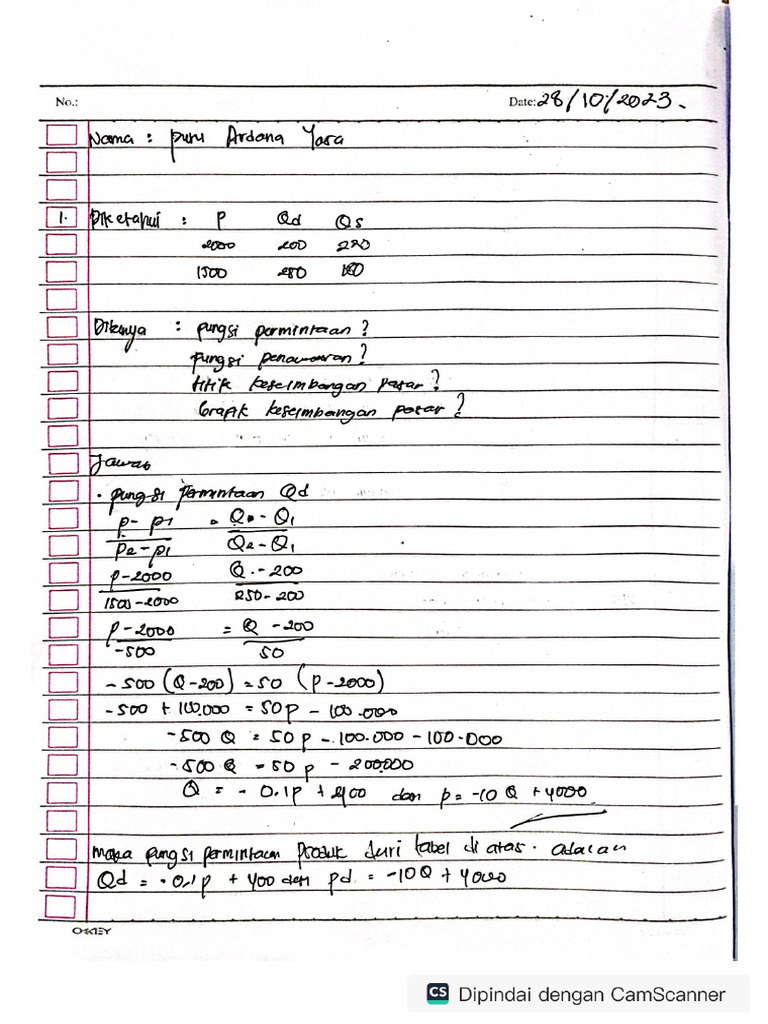 No.: Date: 28/10/2023.
Nama : Putu Ardana Yasa
1. Diketahui : P Qd Qs
2000 200 220
1500 250 180
Ditanya : pungsi permintaan ?
pungsi penawaran ?
titik keseimbangan pasar ?
Grafik keseimbangan pasar ?
Jawab
• pungsi permintaan Qd
p - p1 = Q - Q1
p2 - p1 Q2 - Q1
p - 2000 Q - 200
1500 - 2000 250 - 200
p - 2000 = Q - 200
-500 50
-500 (Q - 200) = 50 (p - 2000)
-500 + 100.000 = 50p - 100.000
-500 Q = 50 p - 100.000 - 100.000
-500 Q = 50 p - 200.000
Q = - 0.1p + 400 dan p = -10 Q + 4000
Maka pungsi permintaan Produk dari tabel di atas. adalah
Qd = -0.1p + 400 dan pd = -10Q + 4000
OKEY
CS Dipindai dengan CamScanner